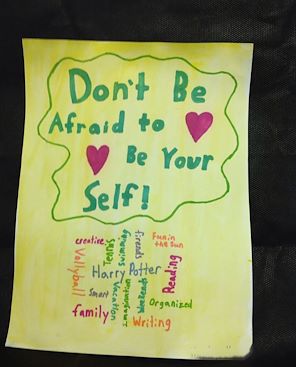 Don't Be
Afraid to
Be Your
Self!
creative
Tennis
Swimming
friends
Fun in
the Sun
Vollyball
Harry Potter
Reading
Smart
Vacation
Imagination
Weekends
Organized
family
Writing